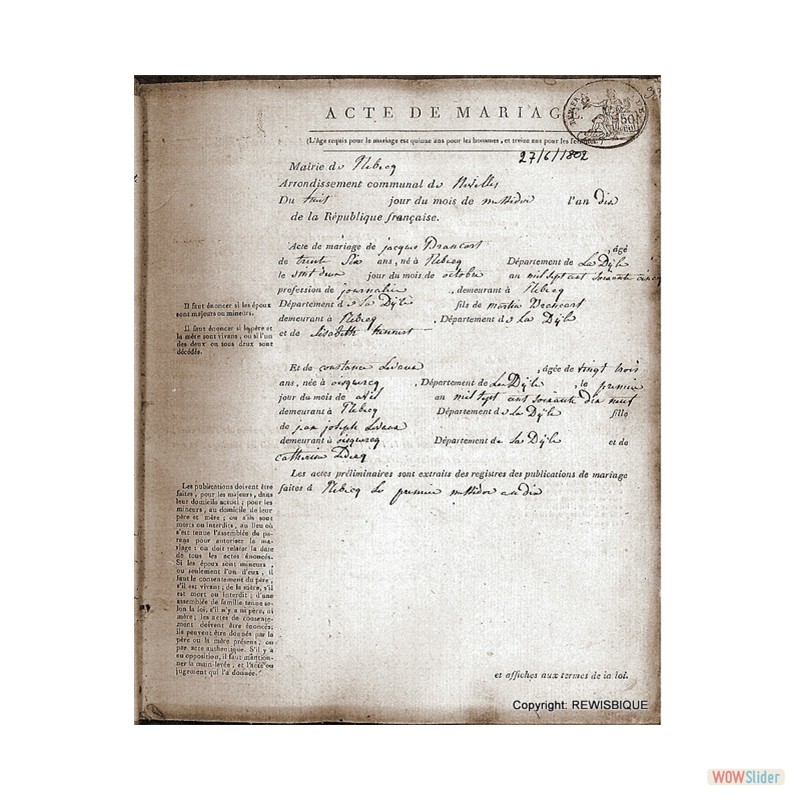 ACTE DE MARIAGE.
50
(L'âge requis pour le mariage est quinze ans pour les hommes, et treize ans pour les femmes.)
27/6/1802
Mairie de Rebecq
Arrondissement communal de Nivelles
Du huit jour du mois de messidor l'an dix
de la République française.
Acte de mariage de jacques Brancart , âgé
de trente Six ans, né à Rebecq Département de La Dÿle
le jour du mois de octobre an mil sept cent soixante cinq
profession de journalier , demeurant à Rebecq
Département de La Dÿle fils de martin Brancart
demeurant à Rebecq , Département de La Dÿle
et de Elisabeth
Il faut énoncer si les époux
sont majeurs ou mineurs.
Il faut énoncer si le père et
la mère sont vivans, ou si l'un
des deux ou tous deux sont
décédés.
Et de constance , âgée de vingt trois
ans, née à oisquercq , Département de La Dÿle , le premier
jour du mois de avril an mil sept cent soixante dix neuf
demeurant à Rebecq Département de La Dÿle fille
de jean joseph
demeurant à oisquercq Département de La Dÿle et de
catherine
Les actes préliminaires sont extraits des registres des publications de mariage
faites à Rebecq Le premier messidor an dix
Les publications doivent être
faites, pour les majeurs, dans
leur domicile actuel ; pour les
mineurs, au domicile de leur
père et mère ; ou s'ils sont
morts ou interdits, au lieu où
s'est tenue l'assemblée de pa-
rens pour autoriser la ma-
riage : on doit relater la date
de tous les actes énoncés.
Si les époux sont mineurs,
ou seulement l'un d'eux, il
faut le consentement du père,
s'il est vivant ; de la mère, s'il
est mort ou interdit ; d'une
assemblée de famille tenue se-
lon la loi, s'il n'y a ni père, ni
mère ; les actes de consente-
ment doivent être énoncés.
Ils peuvent être donnés par le
père ou la mère présens, ou
par acte authentique. S'il y a
eu opposition, il faut mention-
ner la main-levée, et l'acte ou
jugement qui l'a donnée.
et affiches aux termes de la loi.
Copyright: REWISBIQUE
WOWSlider